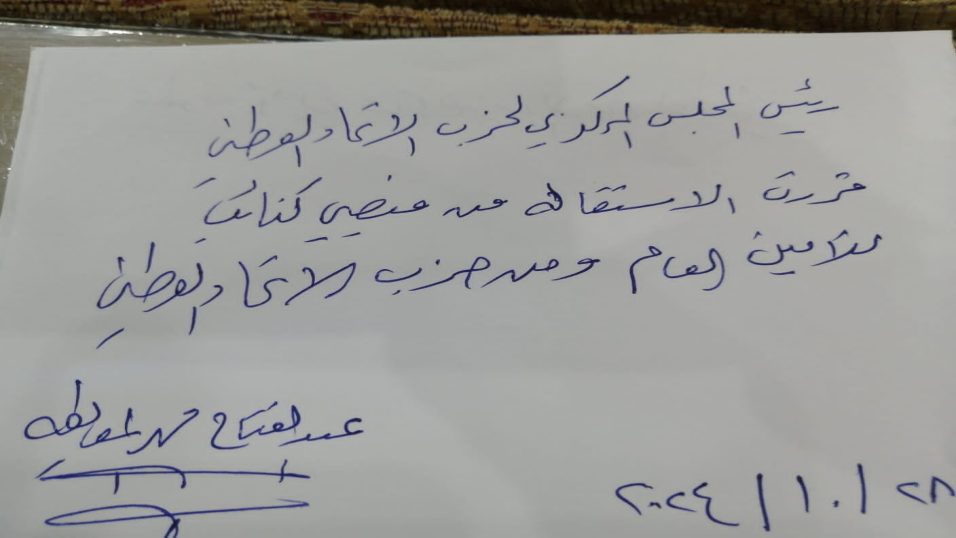 رئيس المجلس المركزي لحزب الاتحاد الوطني
قررت الاستقاله من منصبي كنائب
للامين العام ومن حزب الاتحاد الوطني
عبدالفتاح محمد المعايطه
٢٨/١٠/٢٠٢٤